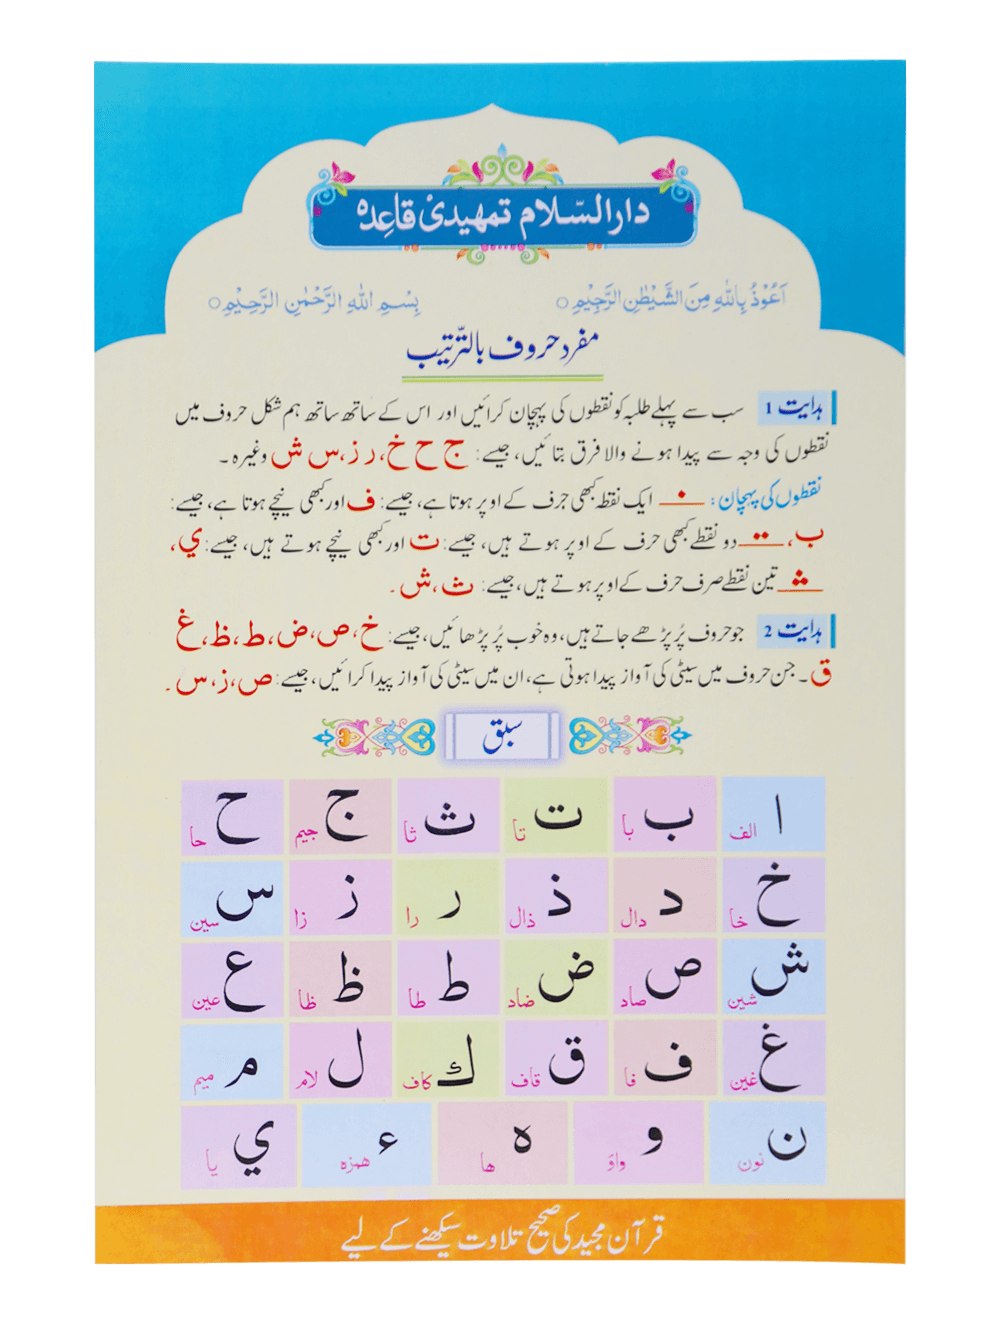 دارالسّلام تمہیدی قاعدہ
اَعُوْذُ بِاللّٰهِ مِنَ الشَّيْطٰنِ الرَّجِيْمِ ○ بِسْمِ اللّٰهِ الرَّحْمٰنِ الرَّحِيْمِ ○
مفرد حروف بالترّتیب
ہدایت 1 سب سے پہلے طلبہ کو نقطوں کی پہچان کرائیں اور اس کے ساتھ ساتھ ہم شکل حروف میں
نقطوں کی وجہ سے پیدا ہونے والا فرق بتائیں، جیسے: ج ح خ، ر ز، س ش وغیرہ۔
نقطوں کی پہچان: ایک نقطہ کبھی حرف کے اوپر ہوتا ہے، جیسے: ف اور کبھی نیچے ہوتا ہے، جیسے:
ب، دو نقطے کبھی حرف کے اوپر ہوتے ہیں، جیسے: ت اور کبھی نیچے ہوتے ہیں، جیسے: ي،
تین نقطے صرف حرف کے اوپر ہوتے ہیں، جیسے: ث، ش۔
ہدایت 2 جو حروف پُر پڑھے جاتے ہیں، وہ خوب پُر پڑھائیں، جیسے: خ، ص، ض، ط، ظ، غ
ق۔ جن حروف میں سیٹی کی آواز پیدا ہوتی ہے، ان میں سیٹی کی آواز پیدا کرائیں، جیسے: ص، ز، س۔
سبق
ا الف ب با ت تا ث ثا ج جیم ح حا
خ خا د دال ذ ذال ر را ز زا س سین
ش شین ص صاد ض ضاد ط طا ظ ظا ع عین
غ غین ف فا ق قاف ك کاف ل لام م میم
ن نون و واؤ ه ها ء همزه ي یا
قرآن مجید کی صحیح تلاوت سیکھنے کے لیے